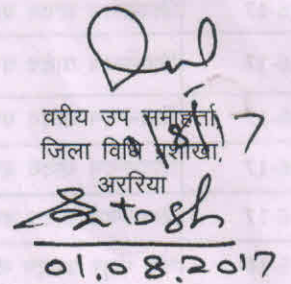 वरीय उप समाहर्त्ता,
जिला विधि प्रशाखा,
अररिया
Santosh
01.08.2017